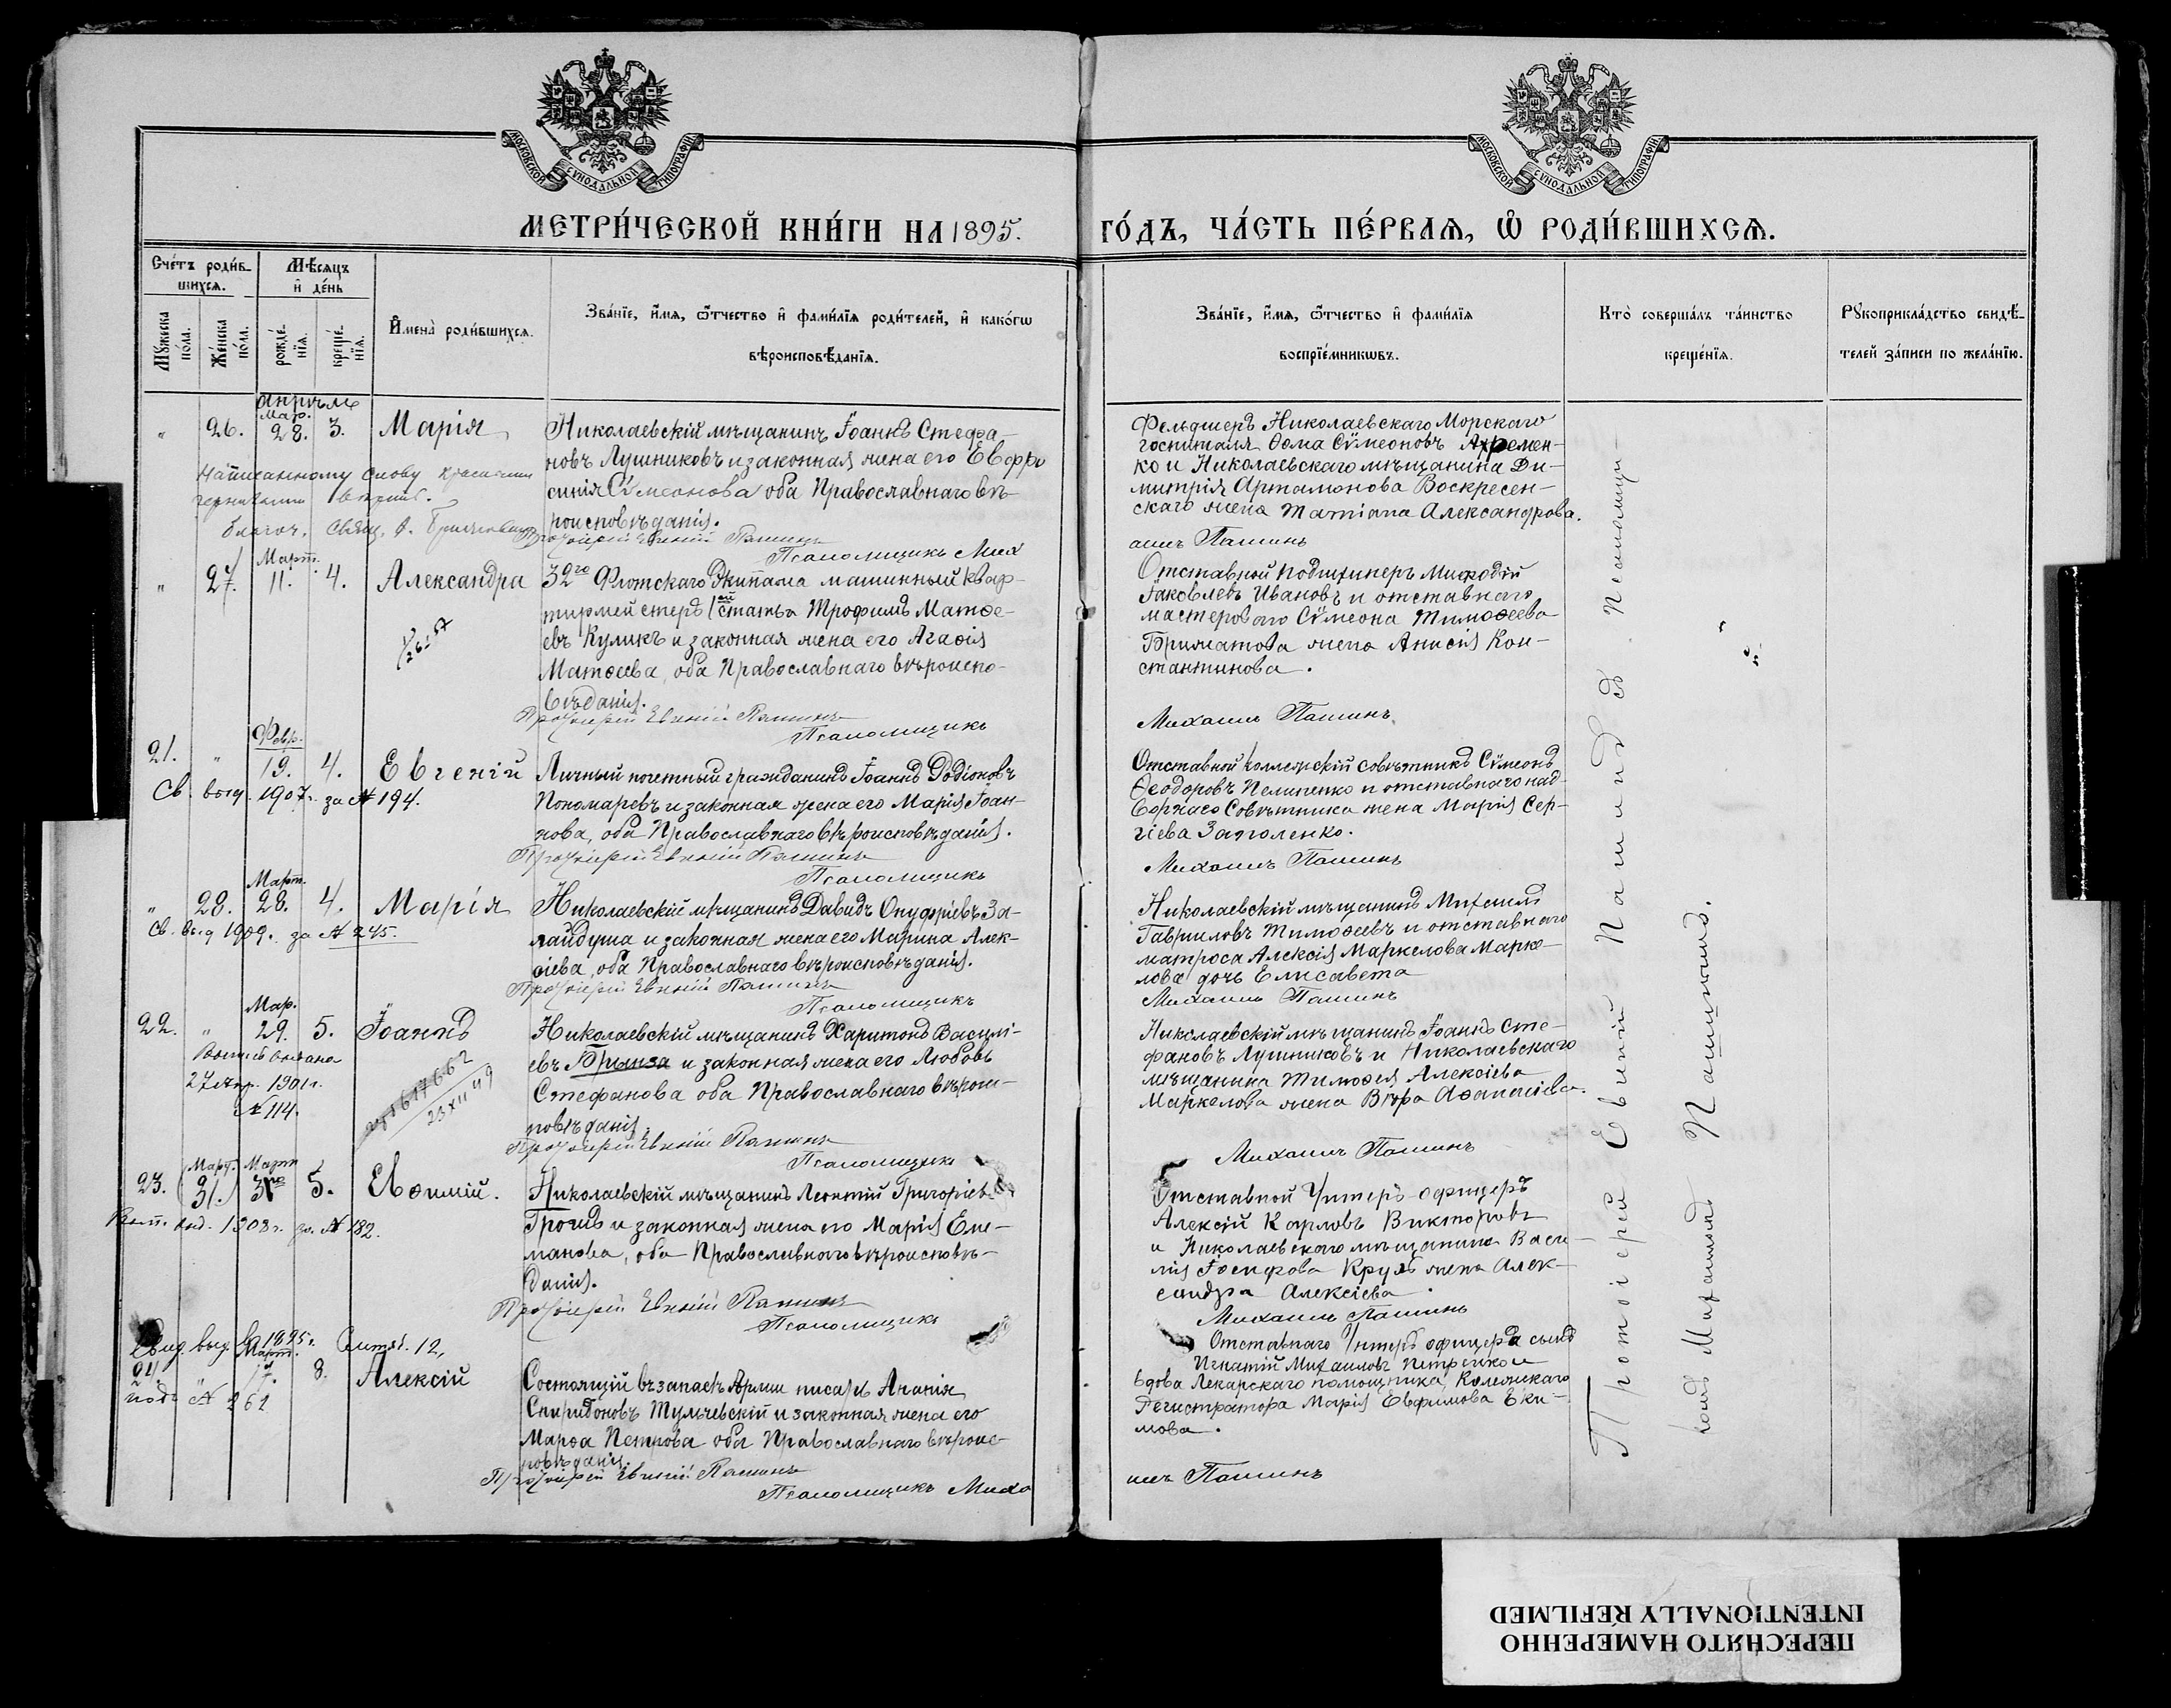 МОСКОВСКОЙ СѴНОДАЛЬНОЙ ТИПОГРАФІИ
МОСКОВСКОЙ СѴНОДАЛЬНОЙ ТИПОГРАФІИ
МЕТРИ́ЧЕСКОЙ КНИ́ГИ НА 1895.
ГО́ДЪ, ЧА́СТЬ ПЕ́РВАЯ, Ѡ РОДИ́ВШИХСЯ.
Сче́тъ роди́в-
шихся.
Мѣ́сяцъ
и де́нь
Мꙋ́жеска
по́ла.
Же́нска
по́ла.
рожде́-
нїя.
креще́-
нїя.
Имена̀ роди́вшихся.
Зва́нїе, и́мя, ѻ҆́тчество и фами́лїя роди́телей, и како́гѡ
вѣроисповѣ́данїя.
Зва́нїе, и́мя, ѻ҆́тчество и фами́лїя
воспрїе́мникѡвъ.
Кто̀ соверша́лъ та́инство
креще́нїя.
Рꙋкоприкла́дство свидѣ́-
телей за́писи по жела́нїю.
Апрѣль
Мар.
" 26. 28. 3. Марія
Николаевскій мѣщанинъ Іоаннъ Стефа-
новъ Лушниковъ и законная жена его Евфро
синія Сѵмеонова оба Православнаго вѣ-
роисповѣданія.
Написанному слову
Благоч. Свящ.
Протоіерей Евгеній Пашинъ
Псаломщикъ Мих
Фельдшеръ Николаевскаго Морскаго
госпиталя Ѳома Сѵмеоновъ Ахремен-
ко и Николаевскаго мѣщанина Ди-
митрія Артамонова Воскресен-
скаго жена Татіана Александрова.
аилъ Пашинъ
Март.
" 27. 11. 4. Александра
32го Флотскаго Экипажа машинный квар-
тирмейстеръ 1ой статьи Трофимъ Матѳе-
евъ Куликъ и законная жена его Агаѳія
Матѳеева, оба Православнаго вѣроиспо-
вѣданія.
Протоіерей Евгеній Пашинъ
Псаломщикъ
Отставной подшкиперъ Меѳодій
Іаковлевъ Ивановъ и отставнаго
мастероваго Сѵмеона Тимоѳеева
жена Анисія Кон-
стантинова.
Михаилъ Пашинъ
Февр.
21. " 19. 4. Евгеній
Св. выд. 1907 г. за № 194.
Личный почетный гражданинъ Іоаннъ Родіоновъ
Пономаревъ и законная жена его Марія Іоан-
нова, оба Православнаго вѣроисповѣданія.
Протоіерей Евгеній Пашинъ
Псаломщикъ
Отставной Коллежскій Совѣтникъ Сѵмеонъ
Ѳеодоровъ Пелипенко и отставнаго над-
ворнаго Совѣтника жена Марія Сер-
гіева Заполенко.
Михаилъ Пашинъ
Март.
" 28. 28. 4. Марія
Св. выд 1909. за № 245.
Николаевскій мѣщанинъ Давидъ Онуфріевъ За-
лайдуша и законная жена его Марина Алек-
сіева, оба Православнаго вѣроисповѣданія.
Протоіерей Евгеній Пашинъ
Псаломщикъ
Николаевскій мѣщанинъ Михаилъ
Гавриловъ Тимоѳеевъ и отставнаго
матроса Алексія Маркелова Марке-
лова дочь Елисавета
Михаилъ Пашинъ
Мар.
22. " 29. 5. Іоаннъ
Выпись выдана
27 Апр. 1901 г.
№ 114.
23 XII 49
Николаевскій мѣщанинъ Харитонъ Василі-
евъ Брынза и законная жена его Любовь
Стефанова оба Православнаго вѣроис-
повѣданія.
Протоіерей Евгеній Пашинъ
Псаломщикъ
Николаевскій мѣщанинъ Іоаннъ Сте-
фановъ Лушниковъ и Николаевскаго
мѣщанина Тимоѳея Алексіева
Маркелова жена Вѣра Аѳанасіева.
Михаилъ Пашинъ
Март. Март
23. (31.) 5. Евѳимій.
Вып. выд. 1908 г. за № 182.
Николаевскій мѣщанинъ Леонтій Григоріев
и законная жена его Марія Ем-
манова, оба Православнаго вѣроисповѣ-
данія.
Протоіерей Евгеній Пашинъ
Псаломщикъ
Отставной Унтеръ-офицеръ
Алексій Карловъ Викторовъ
и Николаевскаго мѣщанина Васи-
лія Іосифова Круль жена Алек-
сандра Алексіева.
Михаилъ Пашинъ
Свид. выд. 1895 г. Сентяб. 12,
Март.
24. " 17. 8. Алексій
подъ № 262
Состоящій въ запасѣ Арміи писарь Ананія
Спиридоновъ Тульчевскій и законная жена его
Марѳа Петрова оба Православнаго вѣроис-
повѣданія.
Протоіерей Евгеній Пашинъ
Псаломщикъ Миха
Отставнаго Унтеръ офицера сынъ
Игнатій Михаиловъ Петренко и
вдова Лекарскаго помощника, Коллежскаго
Регистратора Марія Евфимова Еки-
мова.
илъ Пашинъ
Протоіерей Евгеній Пашинъ съ Псаломщи-
комъ Михаиломъ Пашинымъ.
ПЕРЕСНЯТО НАМЕРЕННО
INTENTIONALLY REFILMED